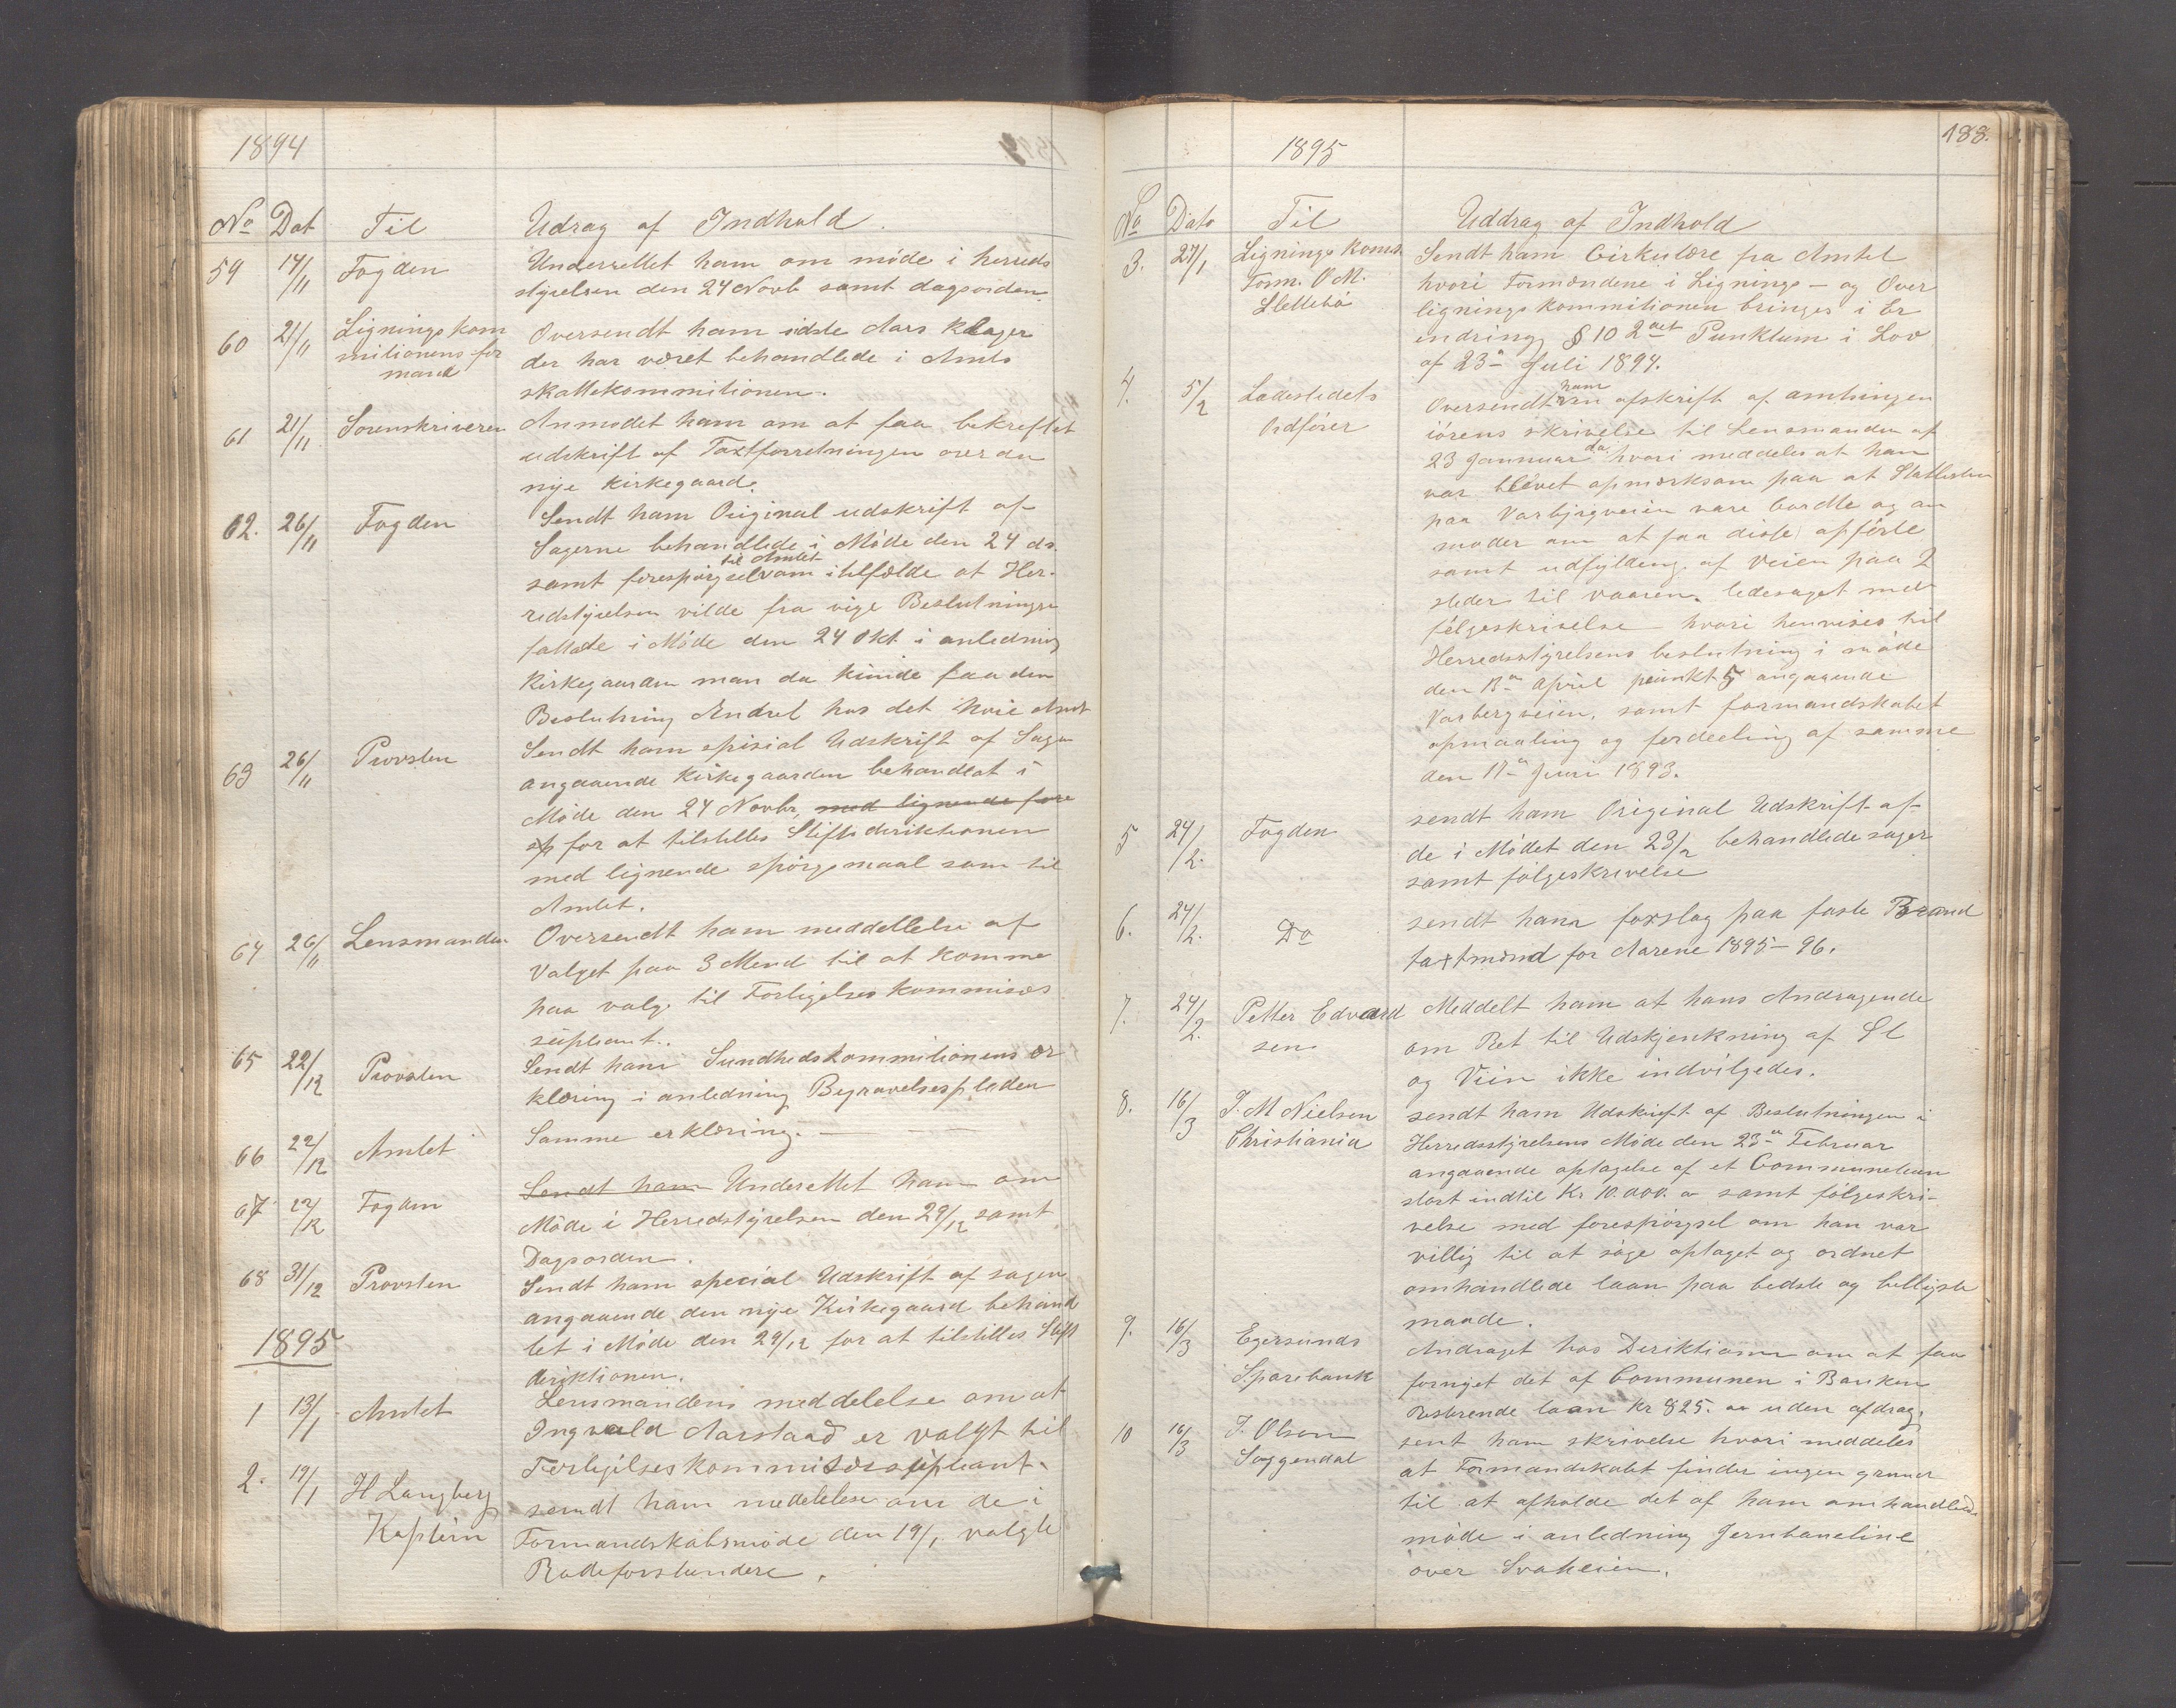 1894
No Dat Til Udrag af Indhold.
59 14/11 Fogden Underrettet ham om møde i herreds
styrelsen den 24 Novb samt dagsorden.
60 21/11 Ligningskom Oversendt ham sidste Aars Klager
mitionens for der har været behandlede i Amts
mand skattekommitionen.
61 21/11 Sorenskriveren Anmodet ham om at faa bekreftet
udskrift af Taxtforretningen over den
nye kirkegaard.
62. 26/11 Fogden Sendt ham Original udskrift af
Sagerne behandlede i Møde den 24 ds.
til Amtet
samt forespørgsel om itilfælde at Her-
redstyrelsen vilde fra vige Beslutningen
fattede i Møde den 24 Okt i anledning
Kirkegaarden man da kunde faa den
Beslutning Endret hos det høie Amt
63 26/11 Provsten Sendt ham spisial Udskrift af Sagen
angaaende Kirkegaarden behandlat i
Møde den 24 Novbr, med lignende fore
sp for at tilstilles Stiftsdiriktionen
med lignende spørgsmaal som til
Amtet.
64 26/11 Lensmanden Oversendt ham meddellelse af
Valget paa 3 Mend til at komme
paa valg til Forligelses kommisæs
supleant.
65 22/12 Provsten Sendt ham Sundhedskommitionens er
klæring i anledning Begravelsespladen
66 22/12 Amtet Samme erklæring. —
67 22/12 Fogden Sendt ham Underettet ham om
Møde i Herredstyrelsen den 29/12 samt
Dagsorden.
68 31/12 Provsten Sendt ham special Udskrift af sagen
angaaende den nye Kirkegaard behand
let i Møde den 29/12 for at tilstilles Stift
diriktionen.
1895
1 13/1 Amtet Lensmandens meddelelse om at
Ingvald Aarstad er valgt til
Forligelseskommisærsupleant.
2. 19/1 H Langberg sendt ham meddelelse om de i
Kaptein Formandskabsmøde den 19/1 valgte
Rodeforstandere.
188.
1895
No Dato Til Uddrag af Indhold
3. 27/1 Lignings koms. Sendt ham Cirkulære fra Amtet
Form. O M. hvori Formændene i Lignings- og Over
Slettebø ligningskommitionen bringes i Er
indring § 10 2det Punktum i Lov
af 23de Juli 1894.
4. 5/2 Ladestedets Oversendt ham afskrift af amtsingen
Ordfører iørens skrivelse til Lensmanden af
23 Jannuar da. hvori meddeles at han
var blevet opmærksom paa at Stabbesten
paa Varbjergveien vare bordte og an
moder om at faa disse opførte
samt udfyldeng af Veien paa 2
steder til vaaren. ledesaget med
følgeskrivelse hvori henvises til
Herredsstyrelsens beslutning i møde
den 13de April punkt 5 angaaende
Varbergveien, samt formandskabet
opmaaling og fordeeling af samme
den 17de Juni 1893.
5 24/2. Fogden sendt ham Original Udskrift af
de i Mødet den 23/2 behandlede sager
samt følgeskrivelse
6. 24/2. Do sendt ham forslag paa faste Brand
taxtmænd for Aarene 1895-96.
7. 24/2. Petter Edvard Meddelt ham at hans Andragende
sen om Ret til Udskjenkning af Øl
og Viin ikke indvilgedes.
8. 16/3 J. M Nielsen sendt ham Udskrift af Beslutningen i
Christiania Herredsstyrelsens Møde den 23de Februar
angaaende optagelse af et Communelaan
stort indtil Kr 10.000. samt følgeskri-
velse med forespørgsel om han var
villig til at søge optaget og ordnet
omhandlede laan paa bedste og billigste
maade.
9. 16/3 Egersunds Andraget hos Diriktionen om at faa
Sparebank fornyet det af Communen i Banken
Resterende laan Kr 825. uden afdrag.
10 16/3 J. Olsen sent ham skrivelse hvori meddeles
Soggendal at Formandskabet finder ingen grund
til at afholde det af ham omhandlede
møde i anledning Jernbaneline
over Svaheien.